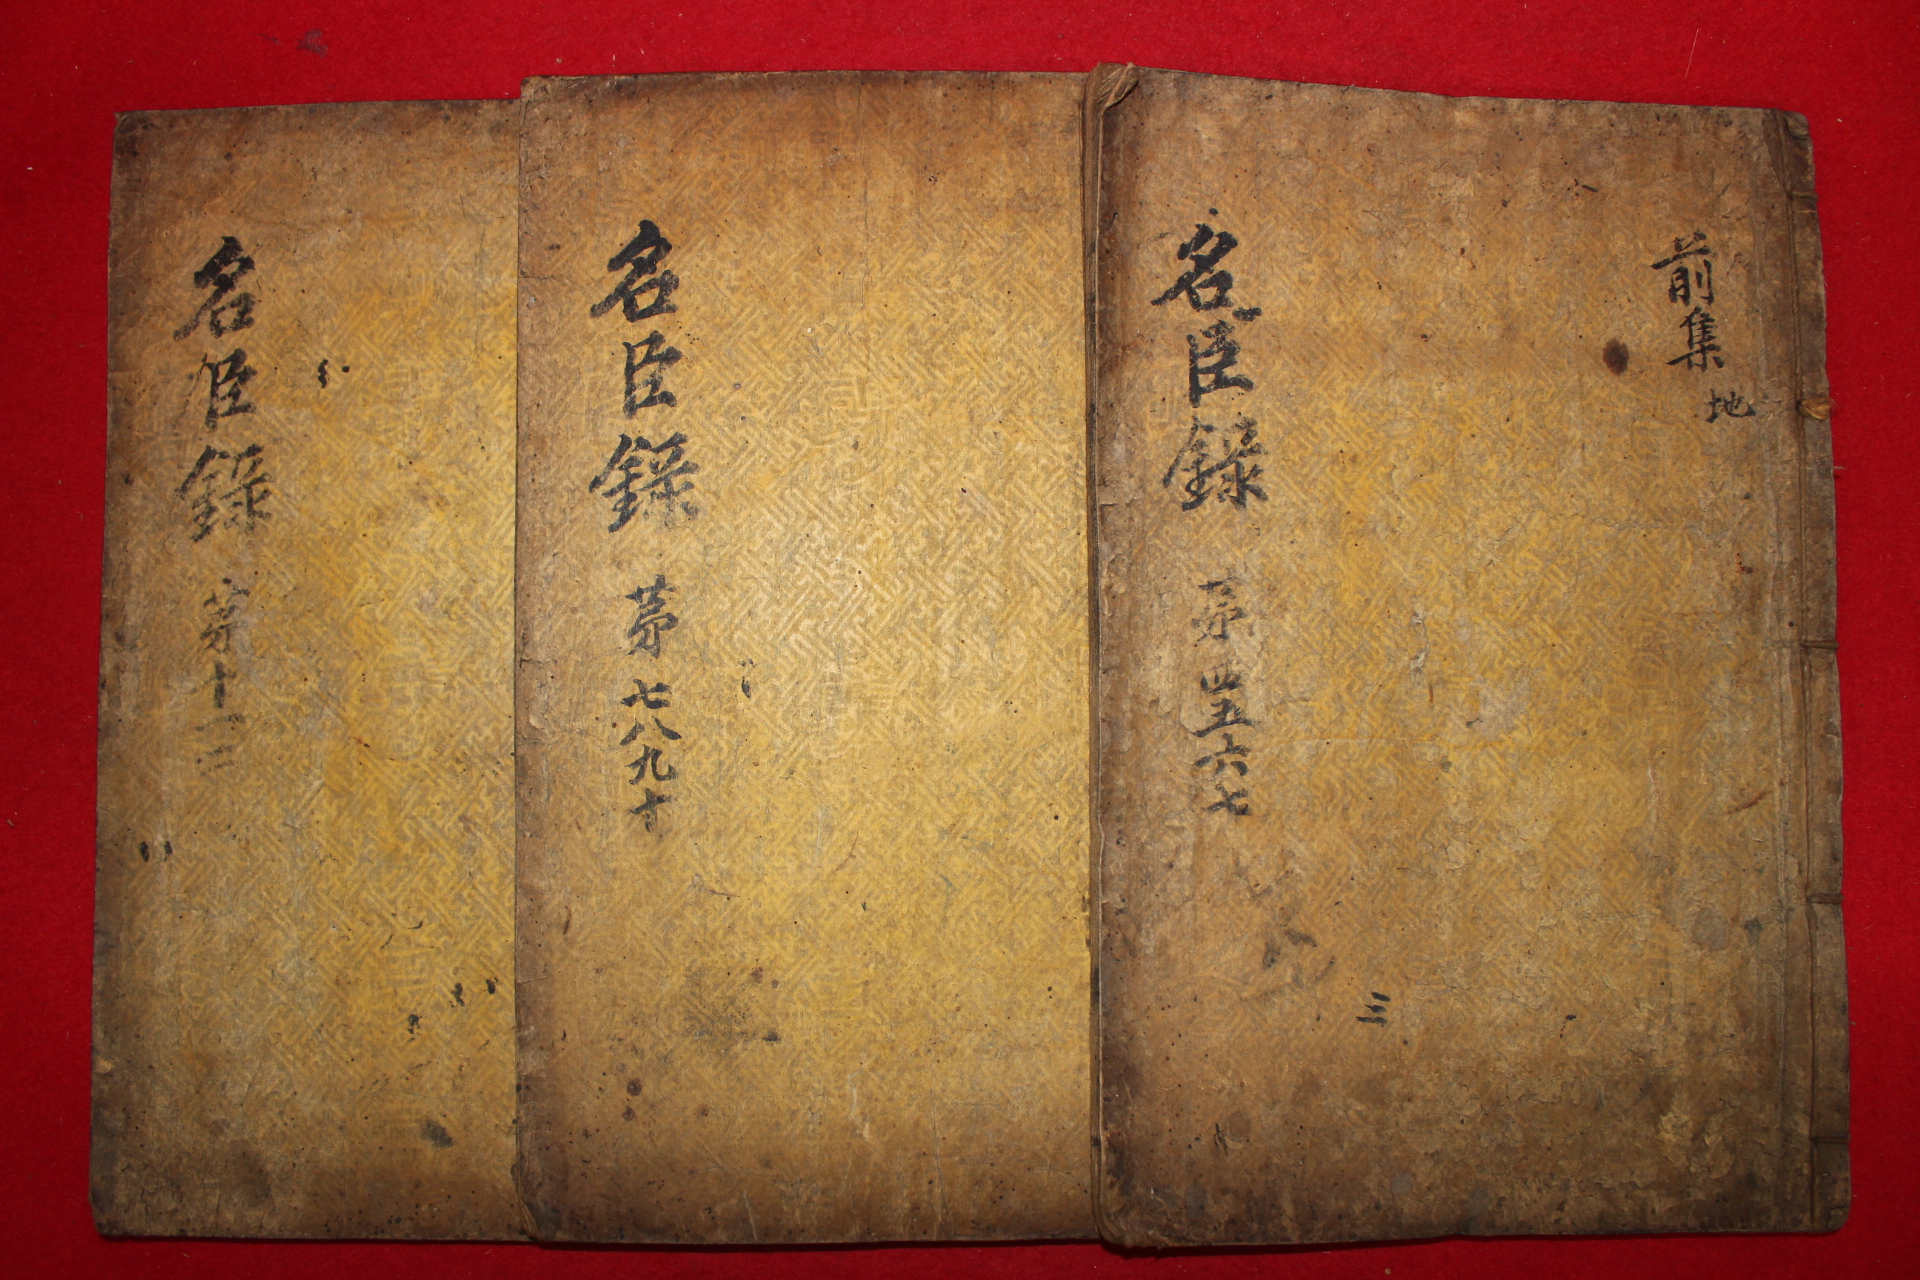 前集 地
名臣錄 第四五六七
三
名臣錄 第七八九十
名臣錄 第十一二